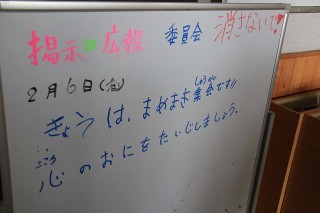 掲示☆広報 委員会 消さないで!!
2月6日(金)
きょうは、まめまき集会です!!
しゅうかい
心のおにをたいじしましょう。
こころ